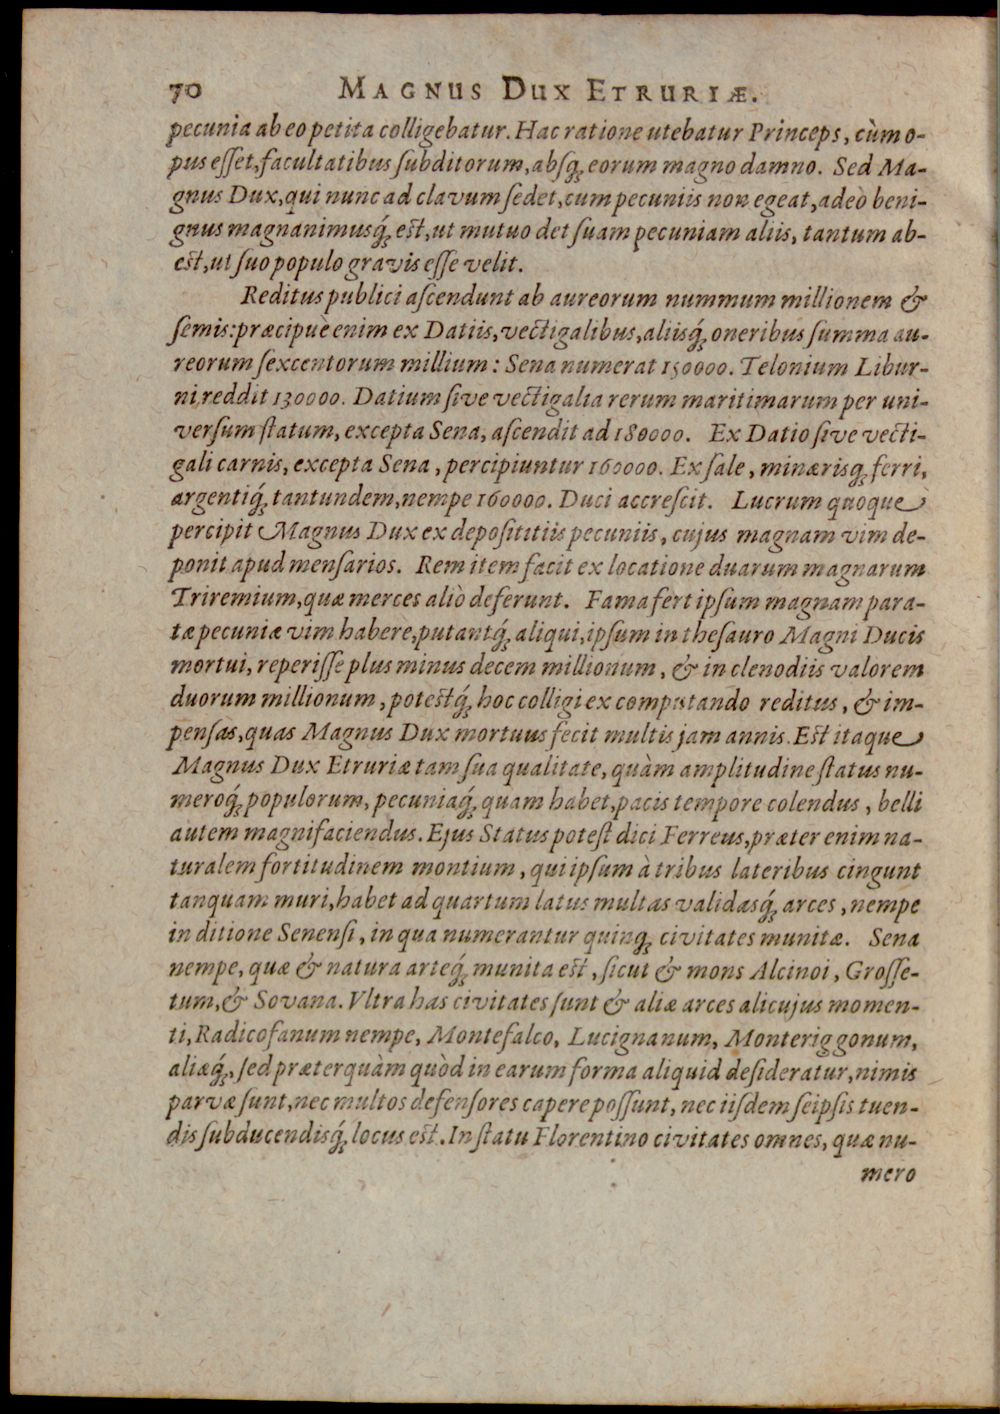 70 MAGNUS DUX ETRURIÆ.
pecunia ab eo petita colligebatur. Hac ratione utebatur Princeps, cùm o-
pus eſſet, facultatibus ſubditorum, abſq́; eorum magno damno. Sed Ma-
gnus Dux, qui nunc ad clavum ſedet, cum pecuniis non egeat, adeò beni-
gnus magnanimusq́; est, ut mutuo det ſuam pecuniam aliis, tantum ab-
est, ut ſuo populo gravis eſſe velit.
Reditus publici aſcendunt ab aureorum nummum millionem &
ſemis: præcipuè enim ex Datiis, vectigalibus, aliisq́; oneribus ſumma au-
reorum ſexcentorum millium: Sena numerat 150000. Telonium Libur-
ni reddit 130000. Datium ſive vectigalia rerum maritimarum per uni-
verſum ſtatum, excepta Sena, aſcendit ad 180000. Ex Datio ſive vecti-
gali carnis, excepta Sena, percipiuntur 160000. Ex ſale, minærisq; ferri,
argentiq́; tantundem, nempe 160000. Duci accreſcit. Lucrum quoque
percipit Magnus Dux ex depoſititiis pecuniis, cujus magnam vim de-
ponit apud menſarios. Rem item facit ex locatione duarum magnarum
Triremium, quæ merces aliò deferunt. Fama fert ipſum magnam para-
tæ pecuniæ vim habere, putantq́; aliqui, ipſum in theſauro Magni Ducis
mortui, reperiſſe plus minus decem millionum, & in clenodiis valorem
duorum millionum, potestq́; hoc colligi ex computando reditus, & im-
penſas, quas Magnus Dux mortuus fecit multis jam annis. Est itaque
Magnus Dux Etruriæ tam ſua qualitate, quàm amplitudine ſtatus nu-
meroq́; populorum, pecuniaq́; quam habet, pacis tempore colendus, belli
autem magnifaciendus. Ejus Status poteſt dici Ferreus, præter enim na-
turalem fortitudinem montium, qui ipſum à tribus lateribus cingunt
tanquam muri, habet ad quartum latus multas validasq́; arces, nempe
in ditione Senenſi, in qua numerantur quinq; civitates munitæ. Sena
nempe, quæ & natura arteq́; munita est, ſicut & mons Alcinoi, Groſſe-
tum, & Sovana. Vltra has civitates ſunt & aliæ arces alicujus momen-
ti, Radicofanum nempe, Montefalco, Lucignanum, Monteriggonum,
aliæq́;, ſed præterquàm quòd in earum forma aliquid deſideratur, nimis
parvæ ſunt, nec multos defenſores capere poſſunt, nec iiſdem ſeipſis tuen-
dis ſubducendisq́; locus est. In ſtatu Florentino civitates omnes, quæ nu-
mero